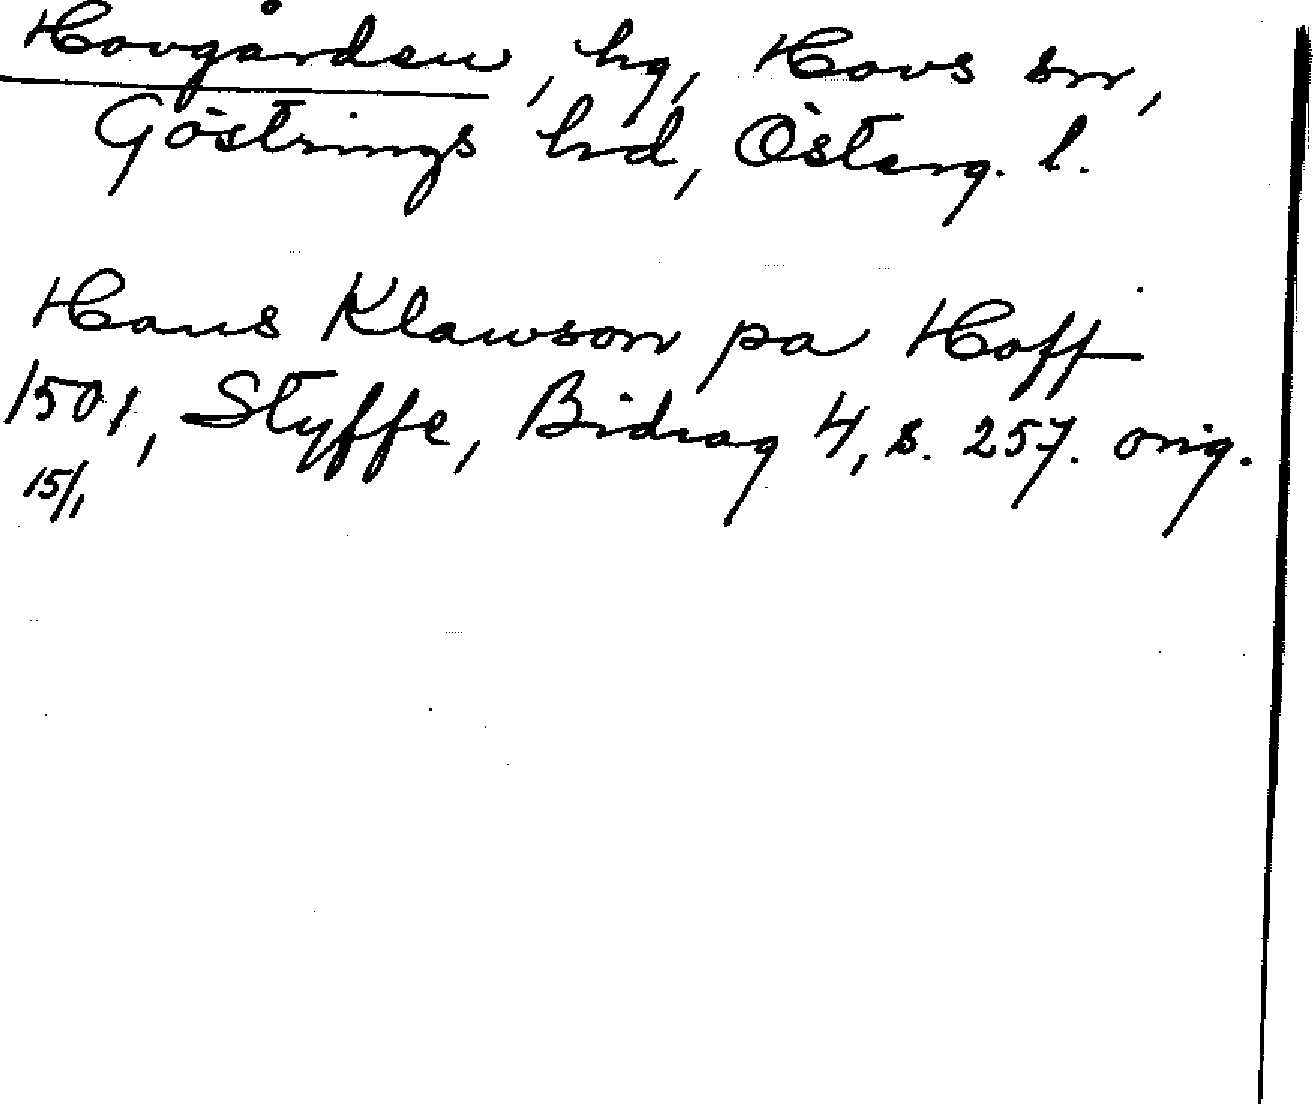 Hovgården, hg, Hovs sn,
Göstrings hd, Österg. l.
Hans Klawson pa Hoff
1501, Styffe, Bidrag 4, s. 257. orig.
15/1